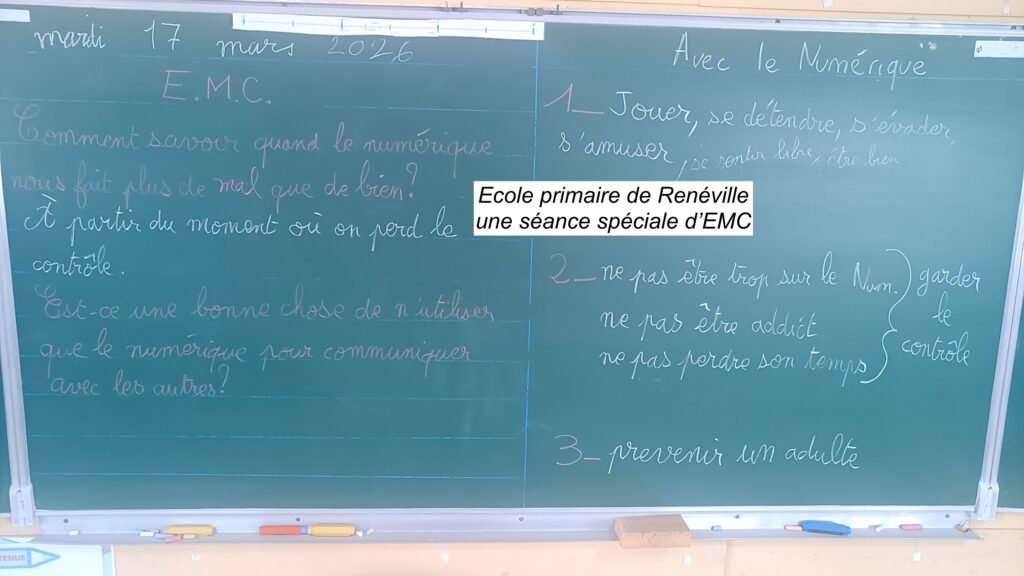 mardi 17 mars 2026
E.M.C.
Comment savoir quand le numérique
nous fait plus de mal que de bien?
À partir du moment où on perd le
contrôle.
Est-ce une bonne chose de n'utiliser
que le numérique pour communiquer
avec les autres?
Avec le Numérique
1_ Jouer, se détendre, s'évader,
s'amuser, se sentir libre, être bien
Ecole primaire de Renéville
une séance spéciale d'EMC
2_ ne pas être trop sur le Num.
ne pas être addict.
ne pas perdre son temps
garder
le
contrôle
3_ prevenir un adulte
TENUE